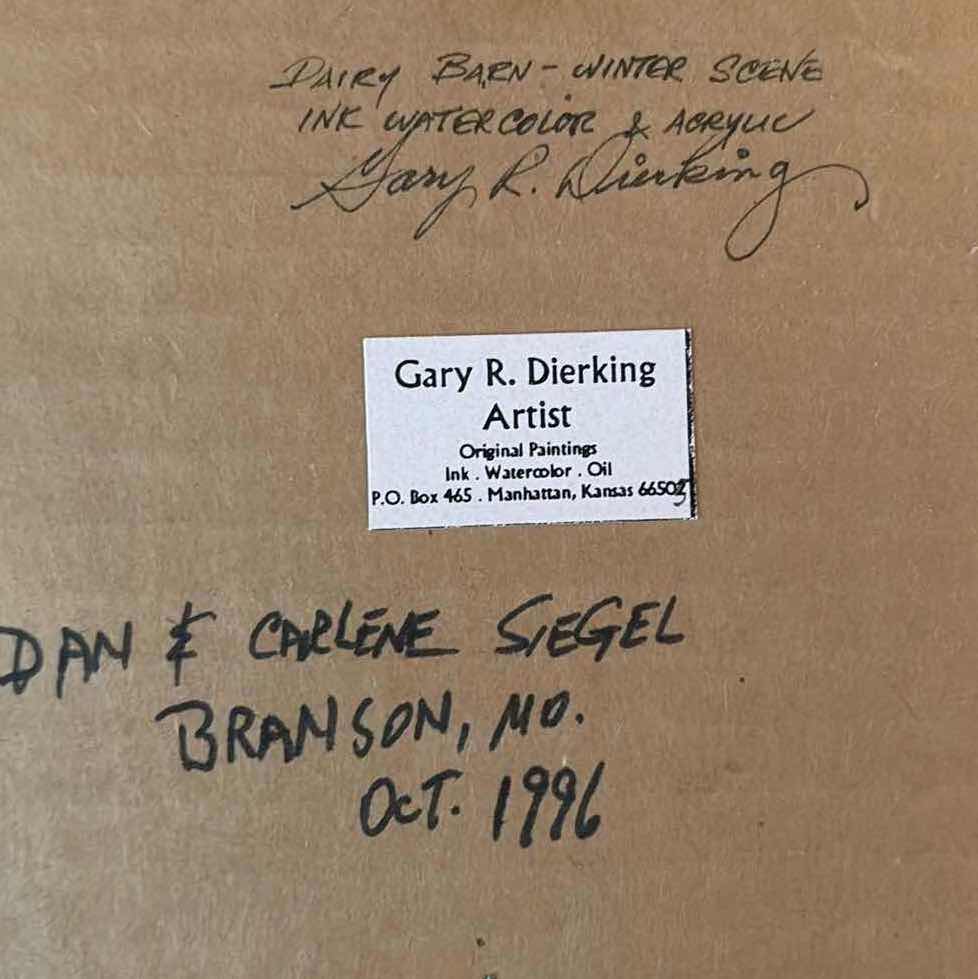 DAIRY BARN - WINTER SCENE
INK WATERCOLOR & ACRYLIC
Gary R. Dierking
Gary R. Dierking
Artist
Original Paintings
Ink . Watercolor . Oil
P.O. Box 465 . Manhattan, Kansas 66505
DAN & CARLENE SIEGEL
BRANSON, MO.
OCT. 1996